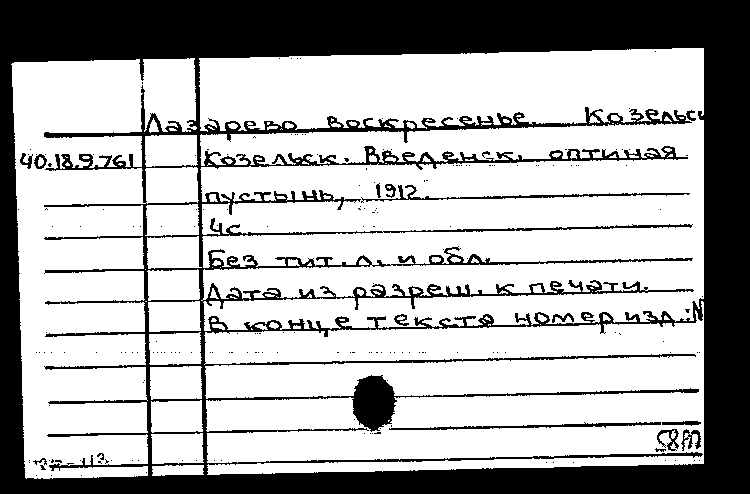 Лазарево воскресенье. Козельск
40.18.9.761 Козельск. Введенск. оптиная
пустынь, 1912.
4с.
Без тит. л. и обл.
Дата из разреш. к печати.
В конце текста номер изд.: N